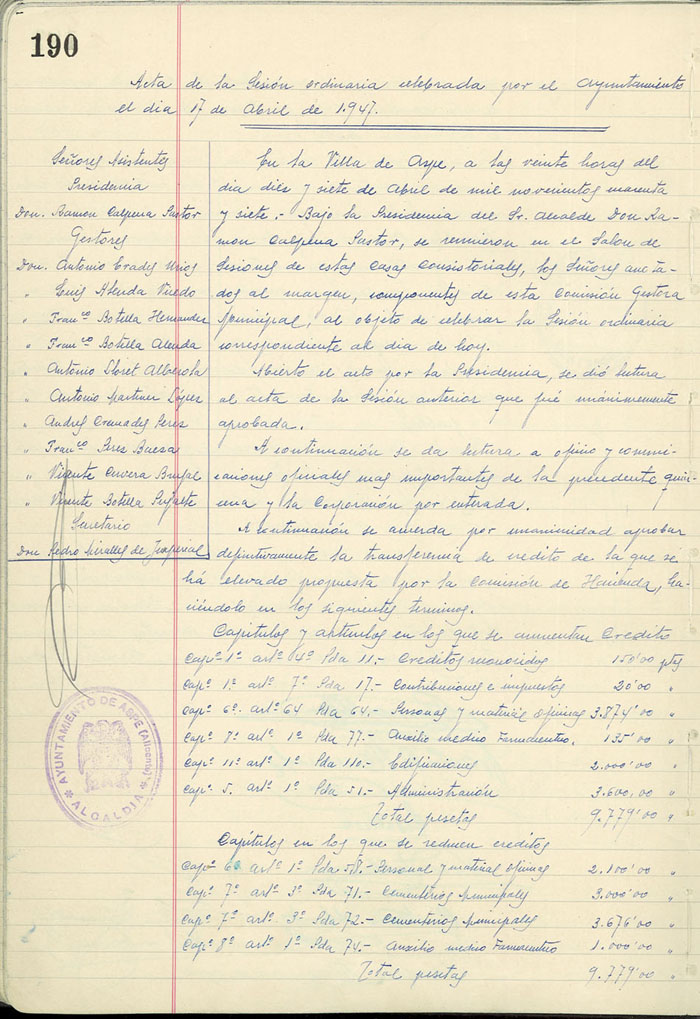 190
Acta de la Sesión ordinaria celebrada por el Ayuntamiento
el dia 17 de Abril de 1.947.
Señores Asistentes
Presidencia
Don. Ramon Calpena Pastor
Gestores
Don. Antonio Prades Urios
" Luis Alenda Viñedo
" Fran.co Botella Hernandez
" Fran.co Botella Alenda
" Antonio Lloret Alberola
" Antonio Martinez López
" Andres Cremades Perez
" Fran.co Perez Baeza
" Vicente Cervera Brufal
" Vicente Botella
Secretario
Don Pedro Miralles de Imperial
En la Villa de Aspe, a las veinte horas del
dia diez y siete de Abril de mil novecientos cuarenta
y siete: Bajo la Presidencia del Sr. Alcalde Don Ra-
mon Calpena Pastor, se reunieron en el Salon de
Sesiones de estas Casas Consistoriales, los Señores anota-
dos al margen, componentes de esta Comisión Gestora
Municipal, al objeto de celebrar la Sesión ordinaria
correspondiente al dia de hoy.
Abierto el acto por la Presidencia, se dió lectura
al acta de la Sesión anterior que fué unánimemente
aprobada.
A continuación se da lectura a oficio y comuni-
caciones oficiales mas importantes de la precedente quin-
cena y la Corporación por enterada.
A continuación se acuerda por unanimidad aprobar
definitivamente la transferencia de credito de la que se
há elevado propuesta por la Comisión de Hacienda, ha-
ciéndolo en los siguientes terminos.
Capitulos y articulos en los que se aumentan Credito
Capº 1º artº 4º Pda 11.- Creditos reconocidos 150'00 ptas
Capº 1º artº 7º Pda 17.- Contribuciones e impuestos 20'00 "
Capº 6º artº 64 Pda 64.- Personal y material oficinas 3.874'00 "
Capº 8º artº 1º Pda 77.- Auxilio medico Farmaceutico. 135'00 "
Capº 11º artº 1º Pda 110.- Edificaciones 2.000'00 "
Capº 5. artº 1º Pda 51.- Administración 3.600,00 "
Total pesetas 9.779'00 "
Capitulos en los que se reducen creditos
Capº 6º artº 1º Pda 58.- Personal y material oficinas 2.100'00 "
Capº 7º artº 3º Pda 71.- Cementerios Municipales 3.000'00 "
Capº 7º artº 3º Pda 72.- Cementerios Municipales 3.676'00 "
Capº 8º artº 1º Pda 74.- Auxilio medico Farmaceutico 1.000'00 "
Total pesetas 9.779'00 "
AYUNTAMIENTO DE ASPE (Alicante)
* ALCALDIA *